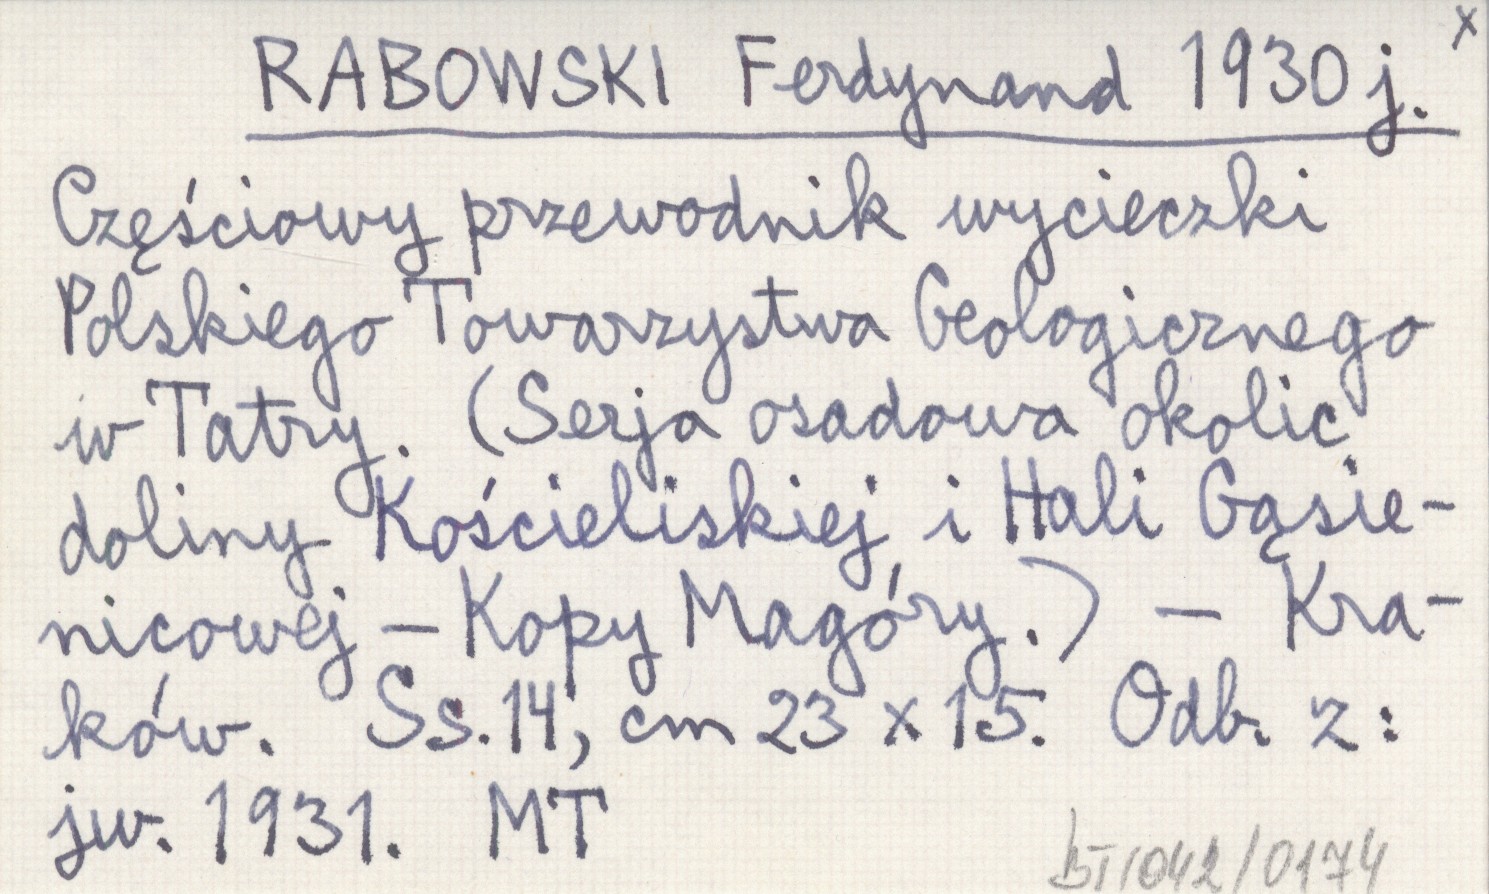 x
RABOWSKI Ferdynand 1930 j.
Częściowy przewodnik wycieczki
Polskiego Towarzystwa Geologicznego
w Tatry. (Serja osadowa okolic
doliny Kościeliskiej i Hali Gąsie-
nicowej – Kopy Magóry.) – Kra-
ków. Ss. 14, cm 23 x 15. Odb. z:
jw. 1931. MT
BT/042/0174